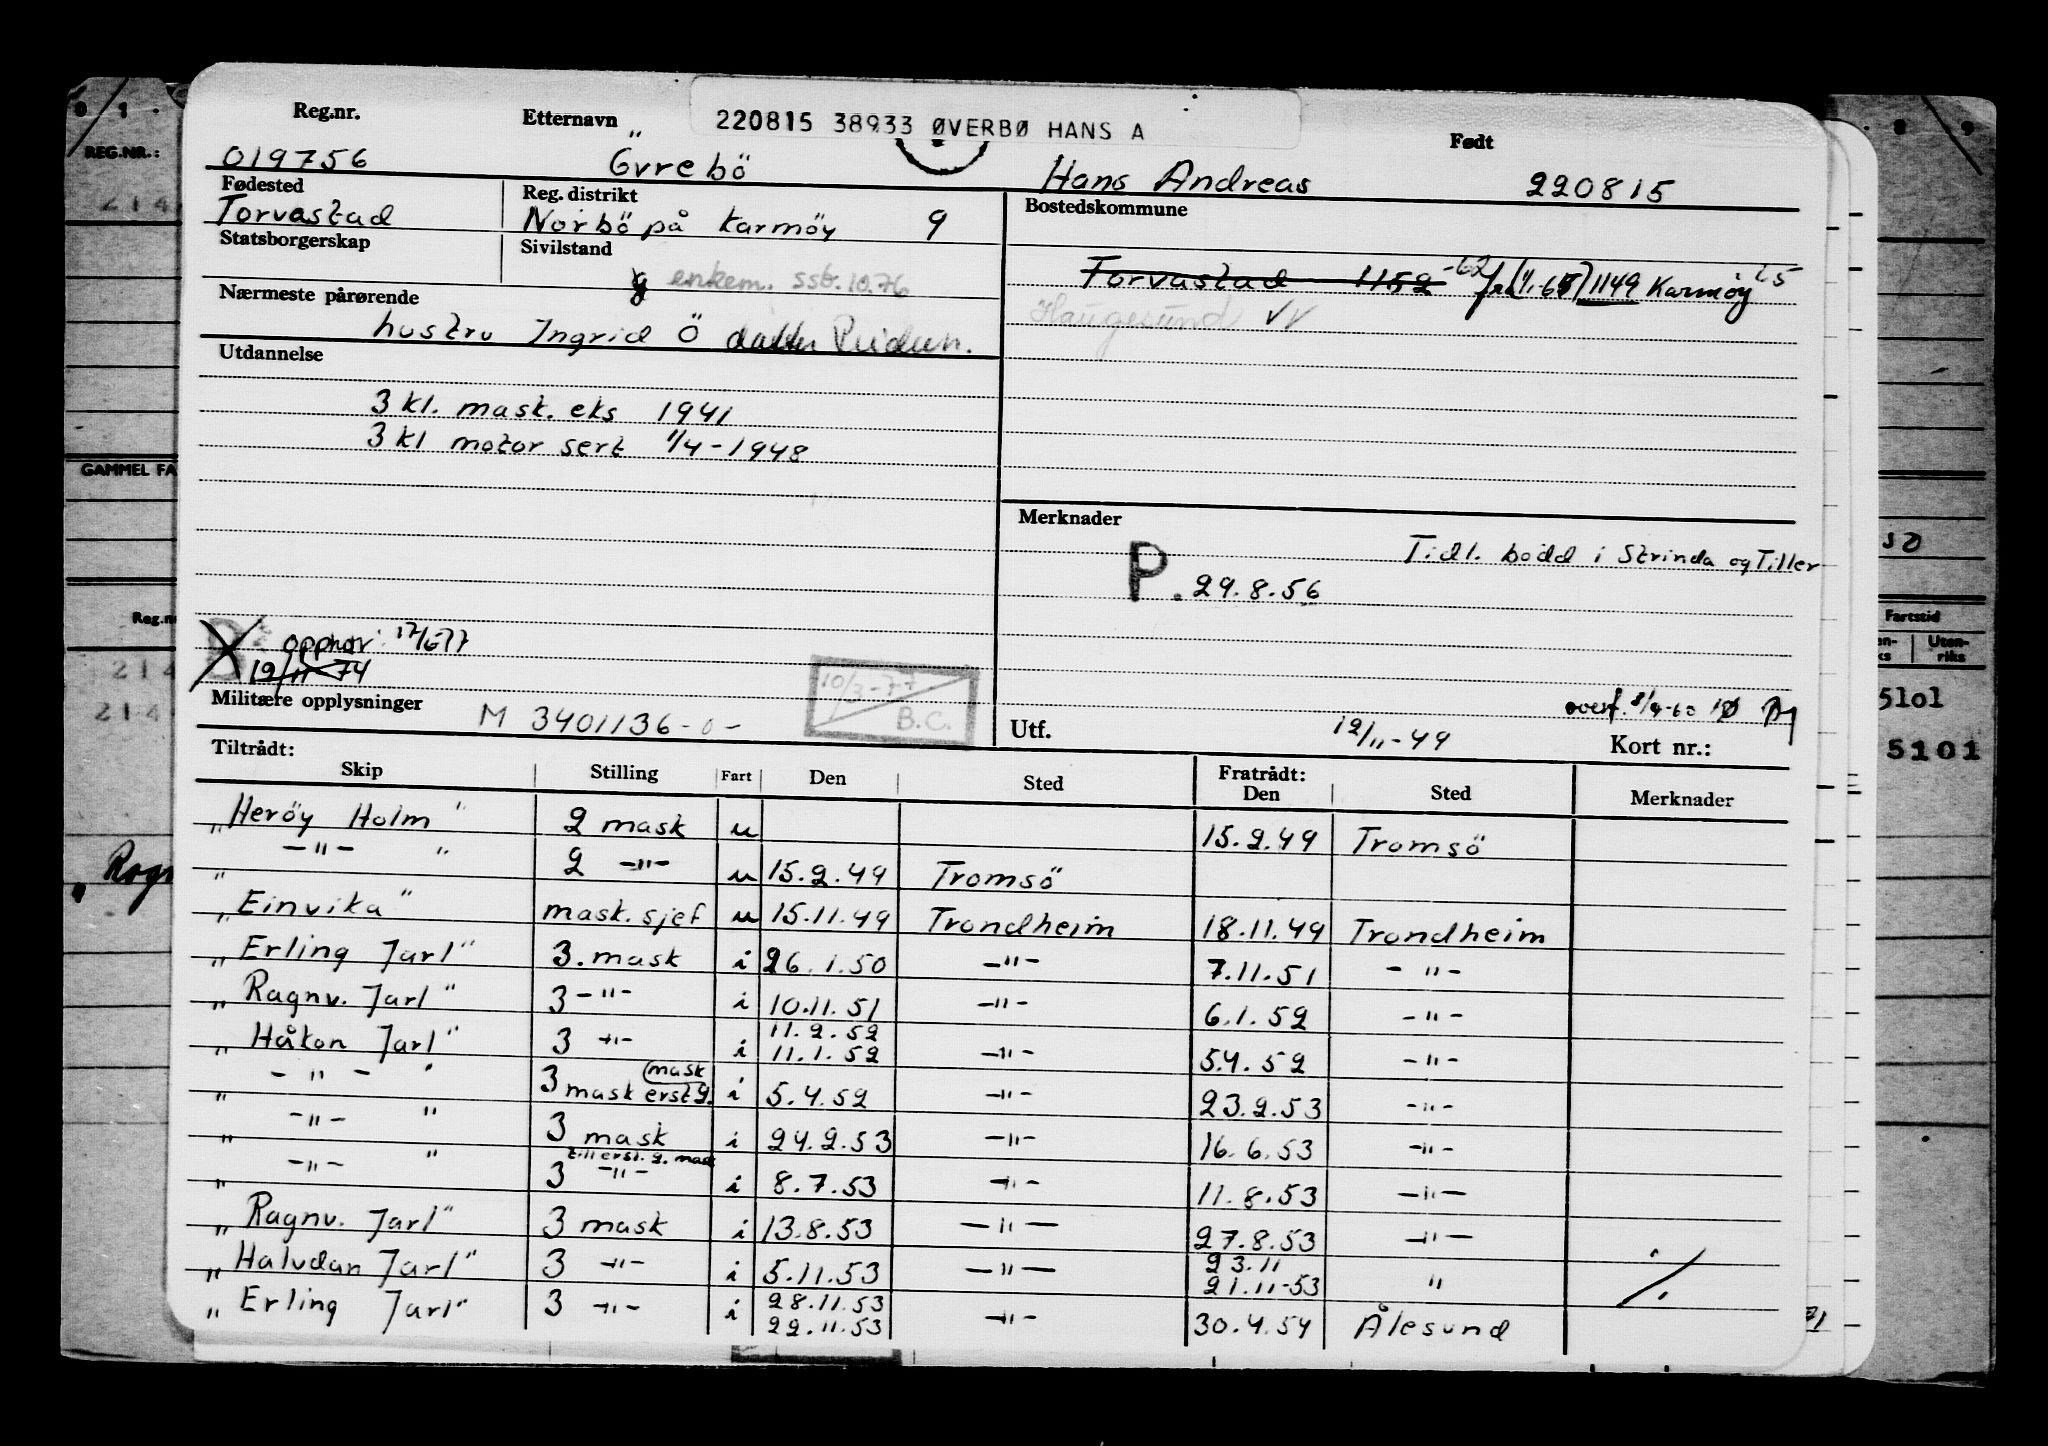 220815 38933 ØVERBØ HANS A
Reg.nr. Etternavn Født
019756 Övrebö Hans Andreas 220815
Fødested Reg. distrikt Bostedskommune
Torvastad Norbö på Karmöy 9
Statsborgerskap Sivilstand
g enkem. ssb. 10.76
Torvastad 1152 -62 fra 1/1.65 1149 Karmöy 65
Haugesund VV
Nærmeste pårørende
hustru Ingrid Ö datter
Utdannelse
3 kl. mask. eks 1941
3 kl motor sert 1/4-1948
Merknader
Tidl. bodd i Strinda og Tiller
P. 29.8.56
opphør 17/6 77
19/11 74
Militære opplysninger M 3401136-0-
10/3-77
B.C.
overf. 8/9-60
Utf. 12/11-49 Kort nr.:
Tiltrådt: Fratrådt:
Skip Stilling Fart Den Sted Den Sted Merknader
"Heröy Holm" 2 mask u 15.2.49 Tromsö
" -"- " 2 -"- u 15.2.49 Tromsö
"Einvika" mask.sjef u 15.11.49 Trondheim 18.11.49 Trondheim
"Erling Jarl" 3. mask i 26.1.50 -"- 7.11.51 -"-
"Ragnv. Jarl" 3 -"- i 10.11.51 -"- 6.1.52 -"-
"Håkon Jarl" 3 -"- i 11.2.52 11.1.52 -"- 5.4.52 -"-
" -"- " 3 mask erst 2. mask i 5.4.52 -"- 23.2.53 -"-
" -"- " 3 mask i 24.2.53 -"- 16.6.53 -"-
" -"- " 3 -"- till erst. 2. mask i 8.7.53 -"- 11.8.53 -"-
"Ragnv. Jarl" 3 mask i 13.8.53 -"- 27.8.53 -"-
"Halvdan Jarl" 3 -"- i 5.11.53 -"- 23.11 21.11-53 " ./.
"Erling Jarl" 3 -"- i 28.11.53 22.11.53 -"- 30.4.54 Ålesund
REG.NR.:
GAMMEL FA
Reg.n
Fartstid
Uten-
riks
5101
5101